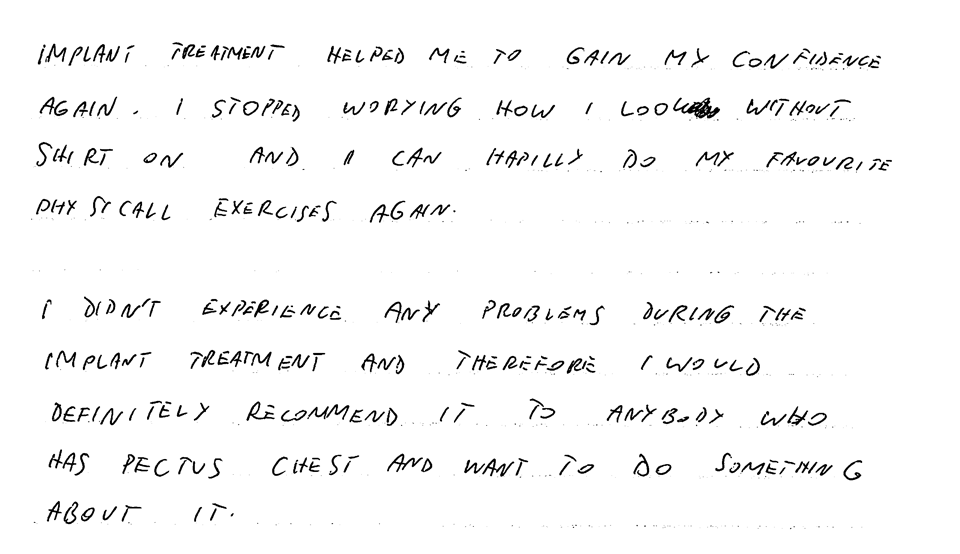 IMPLANT TREATMENT HELPED ME TO GAIN MY CONFIDENCE
AGAIN. I STOPPED WORYING HOW I LOOK WITHOUT
SHIRT ON AND I CAN HAPILLY DO MY FAVOURITE
PHYSYCALL EXERCISES AGAIN.
I DIDN'T EXPERIENCE ANY PROBLEMS DURING THE
IMPLANT TREATMENT AND THEREFORE I WOULD
DEFINITELY RECOMMEND IT TO ANYBODY WHO
HAS PECTUS CHEST AND WANT TO DO SOMETHING
ABOUT IT.